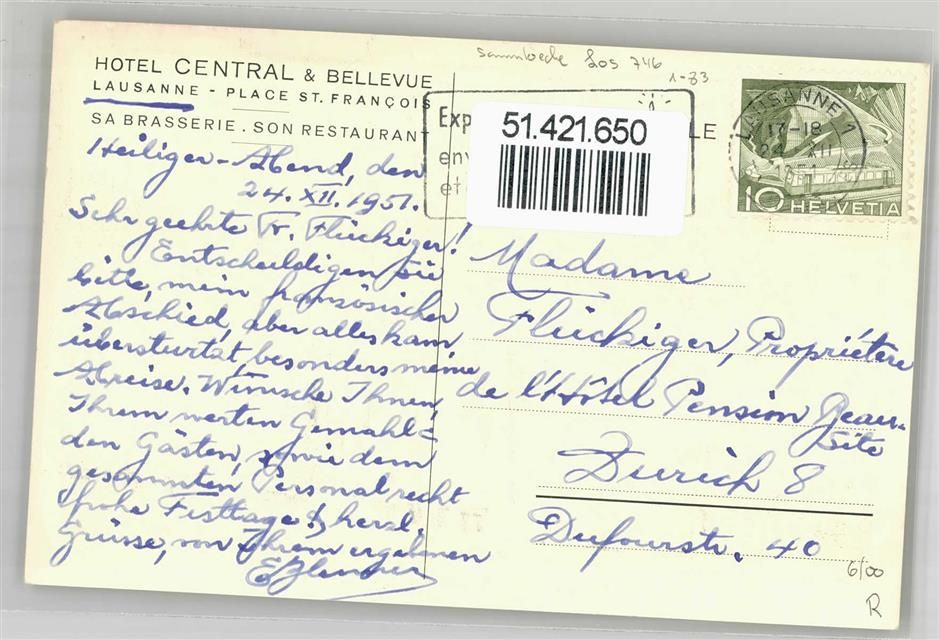 Sammloeche Los 746
1-83
HOTEL CENTRAL & BELLEVUE
LAUSANNE - PLACE ST. FRANÇOIS
SA BRASSERIE . SON RESTAURANT
Heiliger-Abend, den
24. XII. 1951.
Sehr geehrte Fr. Flückiger!
Entschuldigen Sie
bitte, mein französischer
Abschied, aber alles kam
überstürtzt, besonders meine
Abreise. Wünsche Ihnen,
Ihrem werten Gemahl =
den Gästen, sowie dem
gesammten Personal recht
frohe Festtage! & herzl.
Grüsse, von Ihrem ergebenen
Exp
LE
env
et
51.421.650
LAUSANNE 1
17-18
24 XII
10 HELVETIA
Madame
Flückiger, Propriétere
de l'Hôtel Pension Beau-
Site
Zürich 8
Dufourstr. 40
6/00
R